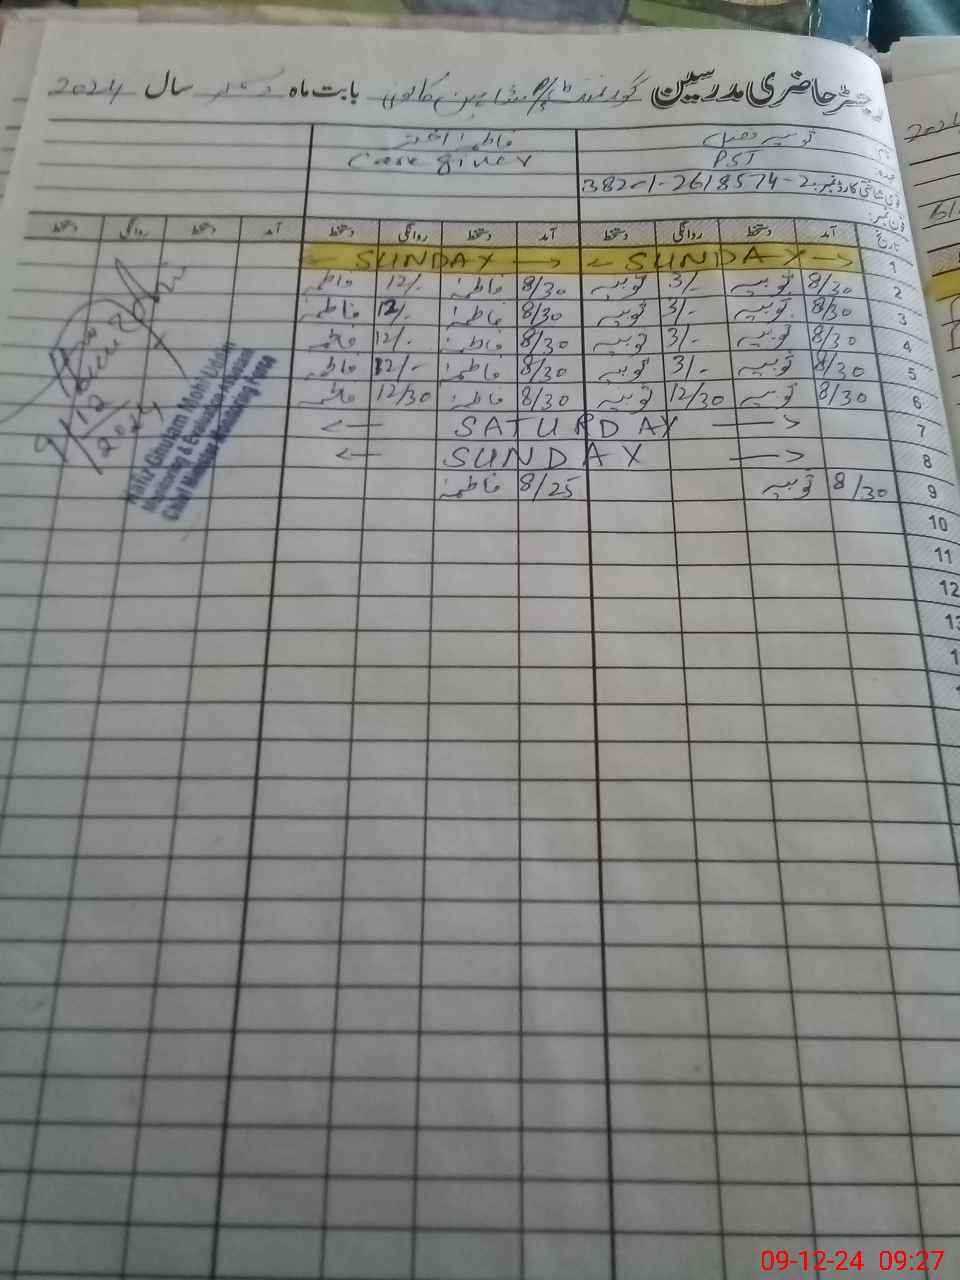 رجسٹر حاضری مدرسین گورنمنٹ بابت ماہ دسمبر سال 2024
ثوبیہ فاطمہ اختر
PST Care giver
قومی شناختی کارڈ نمبر
فون نمبر:
تاریخ آمد دستخط روانگی دستخط آمد دستخط روانگی دستخط آمد دستخط روانگی دستخط
1 ← SUNDAY → ← SUNDAY →
2 8/30 ثوبیہ 3/- ثوبیہ 8/30 فاطمہ 12/- فاطمہ
3 8/30 ثوبیہ 3/- ثوبیہ 8/30 فاطمہ 12/- فاطمہ
4 8/30 ثوبیہ 3/- ثوبیہ 8/30 فاطمہ 12/- فاطمہ
5 8/30 ثوبیہ 3/- ثوبیہ 8/30 فاطمہ 12/- فاطمہ
6 8/30 ثوبیہ 12/30 ثوبیہ 8/30 فاطمہ 12/30 فاطمہ
7 ← SATURDAY →
8 ← SUNDAY →
9 8/30 ثوبیہ 8/25 فاطمہ
10
11
12
13
9/12/2024
Hafiz Ghulam Mohi Uddin
Monitoring & Evaluation Assistant
Chief Minister Monitoring Force
2024
09-12-24 09:27